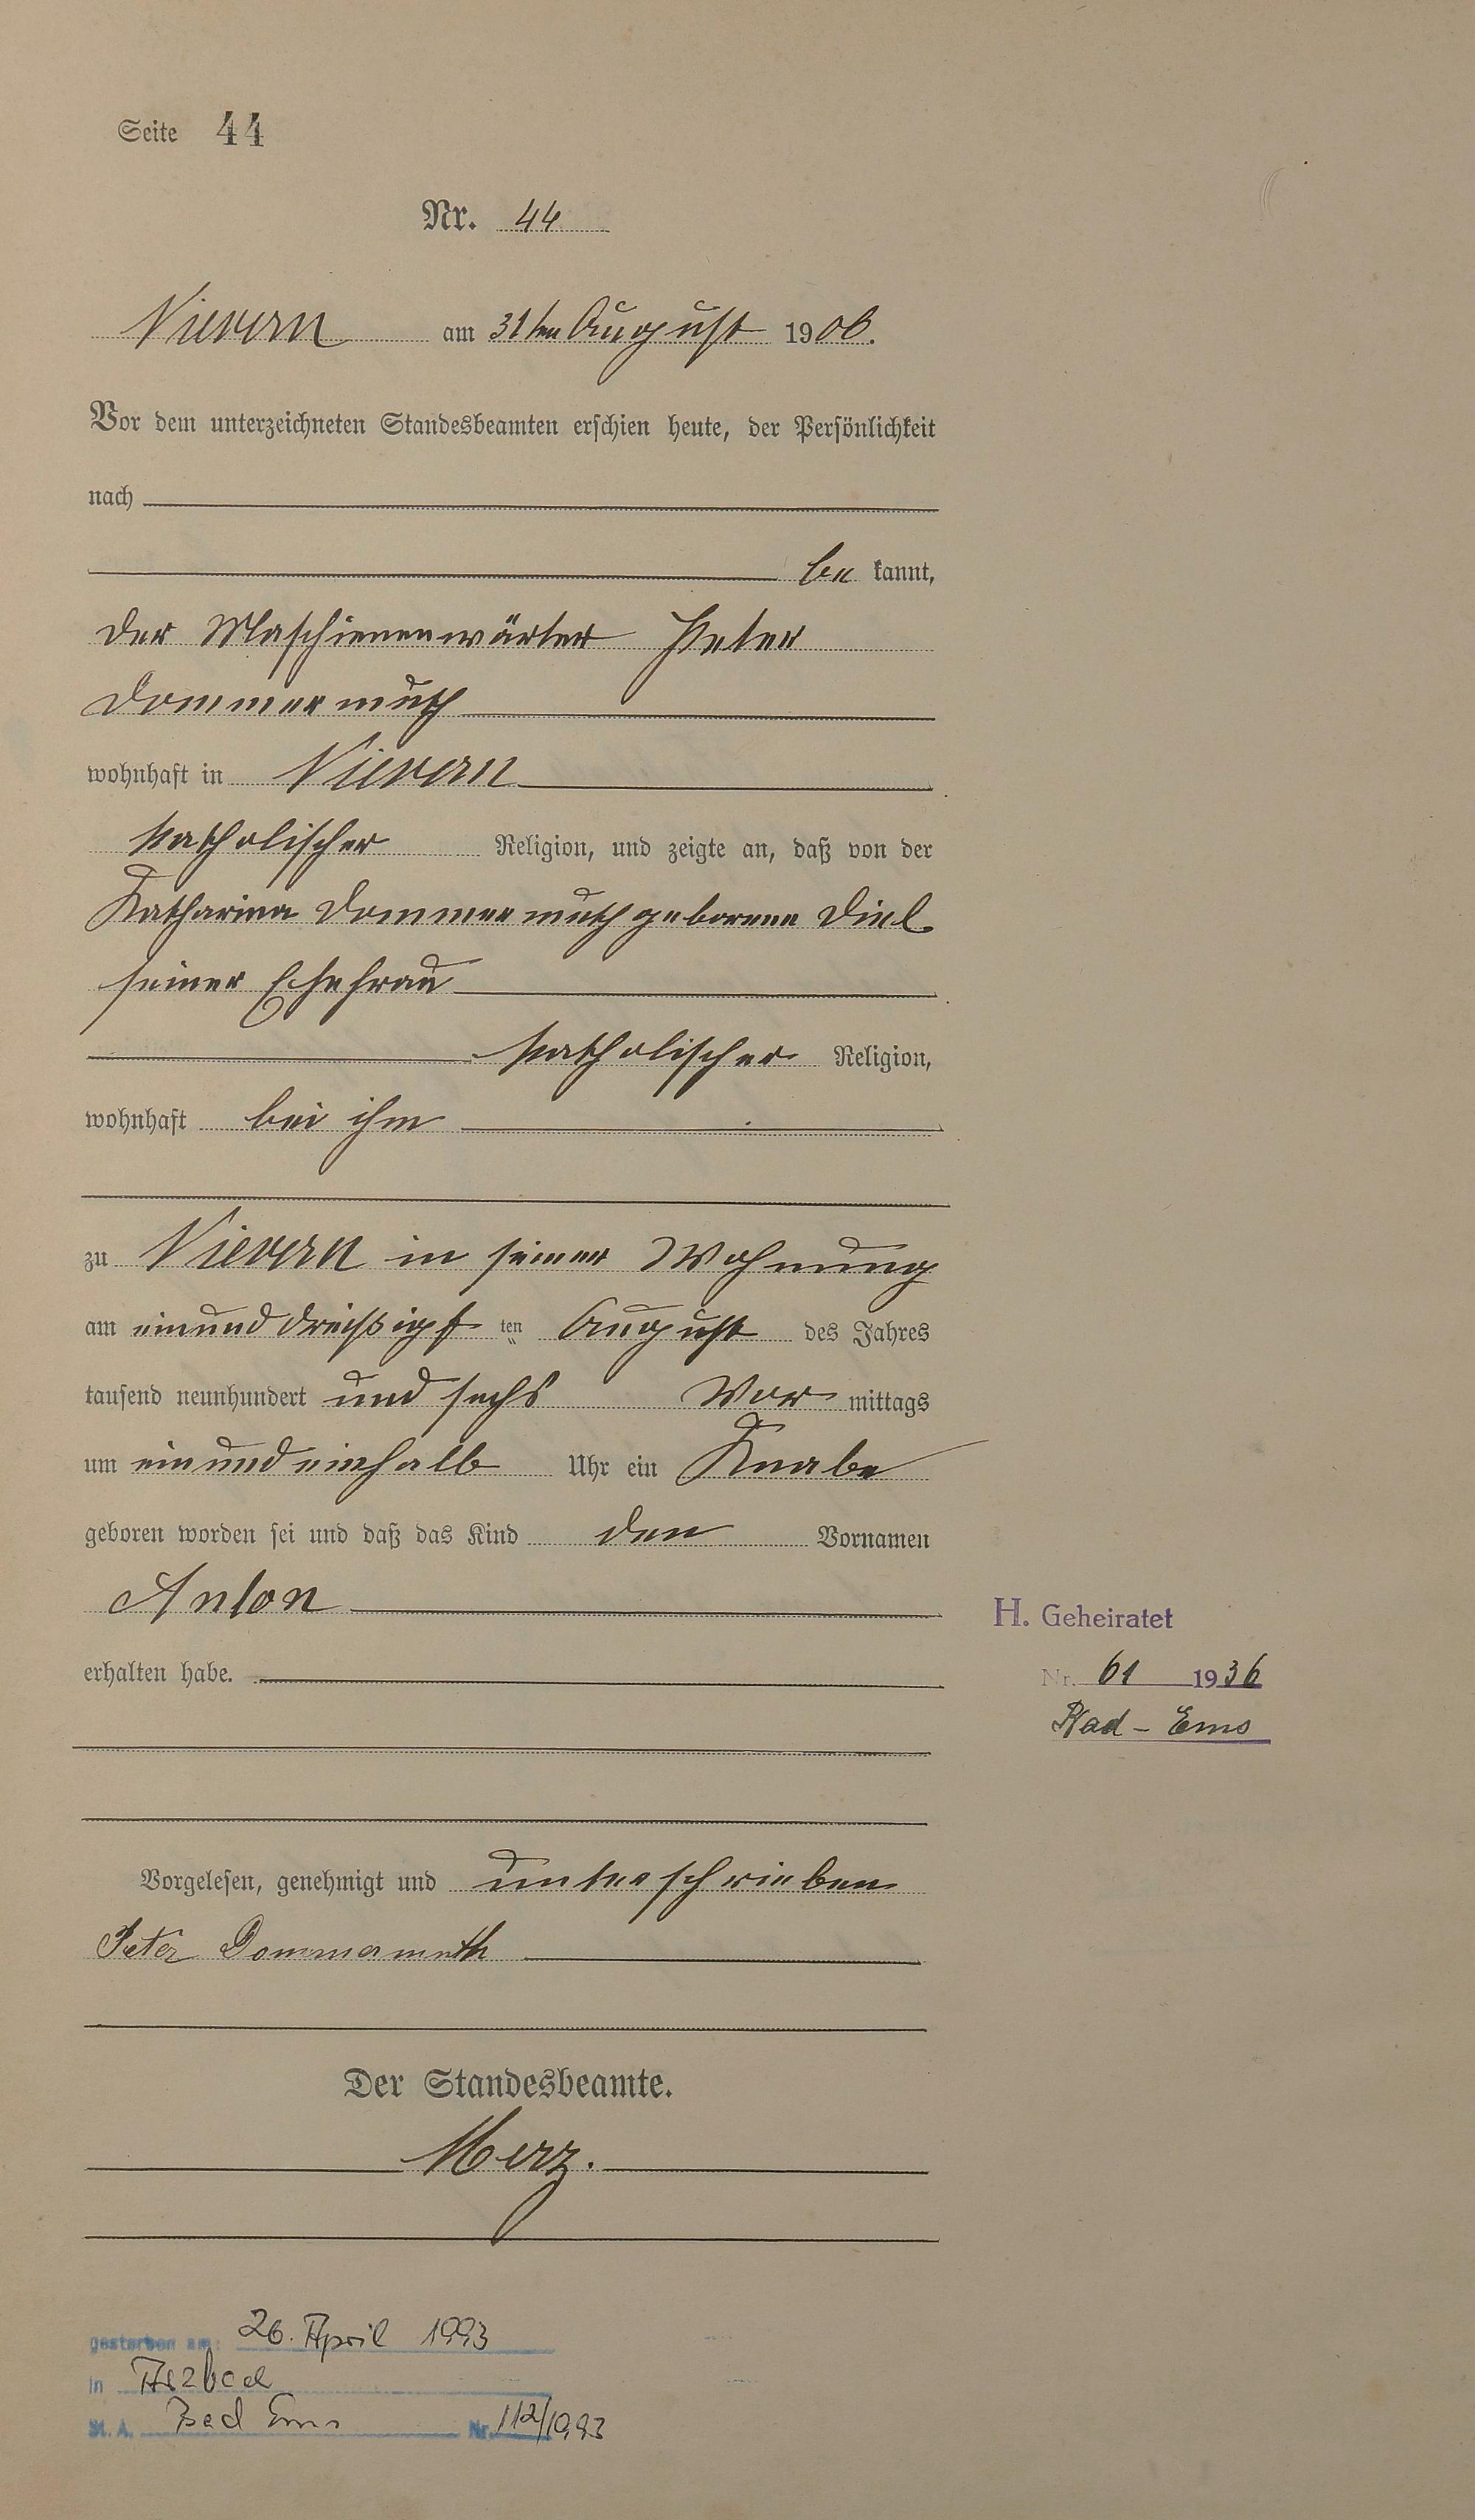 Seite 44
Nr. 44
Nievern am 31ten August 1906.
Vor dem unterzeichneten Standesbeamten erschien heute, der Persönlichkeit
nach
be kannt,
der Maschienenwärter Peter
Dommermuth
wohnhaft in Nievern
katholischer Religion, und zeigte an, daß von der
Katharina Dommermuth geborene Diel
seiner Ehefrau
katholischer Religion,
wohnhaft bei ihm
zu Nievern in seiner Wohnung
am einunddreißigsten August des Jahres
tausend neunhundert und sechs Vor mittags
um einundeinhalb Uhr ein Knabe
geboren worden sei und daß das Kind den Vornamen
Anton
H. Geheiratet
erhalten habe.
Nr. 61 1936
Bad-Ems
Vorgelesen, genehmigt und unterschrieben
Peter Dommermuth
Der Standesbeamte.
Merz.
gestorben am: 26. April 1993
in Arzbach
St. A. Bad Ems Nr. 112/1993